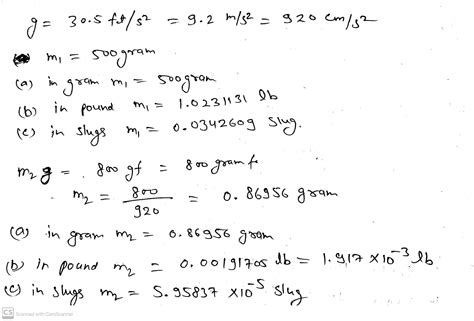 g = 30.5 ft/s² = 9.2 m/s² = 920 cm/s²
m₁ = 500gram
(a) in gram m₁ = 500gram
(b) in pound m₁ = 1.0231131 lb
(c) in slugs m₁ = 0.0342609 slug.
m₂ g = 800 gf = 800 gram f
m₂ = 800/920 = 0.86956 gram
(a) in gram m₂ = 0.86956 gram
(b) in pound m₂ = 0.00191705 lb = 1.917 ×10⁻³ lb
(c) in slugs m₂ = 5.95837 ×10⁻⁵ slug
CS Scanned with CamScanner